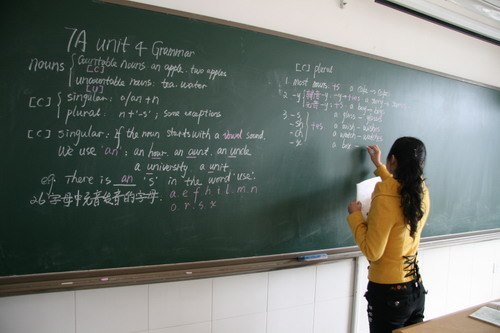 7A unit 4 Grammar
nouns { Countable nouns: an apple. two apples
[C]
uncountable nouns: tea. water
[U]
[C] { singular: a/an + n
plural: n + '-s'; some exceptions
[C] singular: if the noun starts with a vowel sound.
We use 'an': an hour. an aunt. an uncle
a university a unit
eg. There is an 's' in the word 'use'.
26字母中元音 音的字母: a e f h i l m n
o r s x
[C] plural
1. most nouns: +s a cake - cakes
2. -y
3. -s
-sh
-ch
-x
+es
a glass - glasses
a brush - brushes
a watch - watches
a box